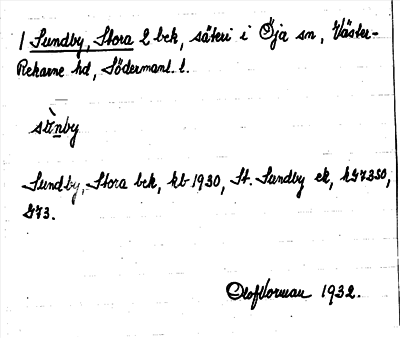 / Sundby, Stora 2 bck, säteri i Öja sn, Väster-
Rekarne hd, Södermanl. l.
Sundby, Stora bck, kb 1930, St. Sundby ek, k97350,
973.
Olof Vorman 1932.